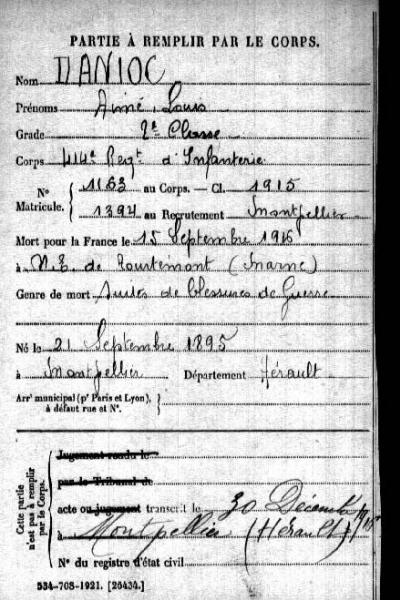 PARTIE À REMPLIR PAR LE CORPS.
Nom DANIOC
Prénoms Aimé, Louis
Grade 2e Classe
Corps 414e Regt d'Infanterie
N° 1163 au Corps. — Cl. 1915
Matricule. 1394 au Recrutement Montpellier
Mort pour la France le 15 Septembre 1916
à N.E. de (Marne)
Genre de mort Suites de blessures de Guerre
Né le 21 Septembre 1895
à Montpellier Département Hérault
Arrt municipal (pr Paris et Lyon),
à défaut rue et N°.
Cette partie
n'est pas à remplir
par le Corps.
Jugement rendu le
par le Tribunal de
acte ou jugement transcrit le 30 Décembre
à Montpellier (Hérault)
N° du registre d'état civil
534-708-1921. [26434.]